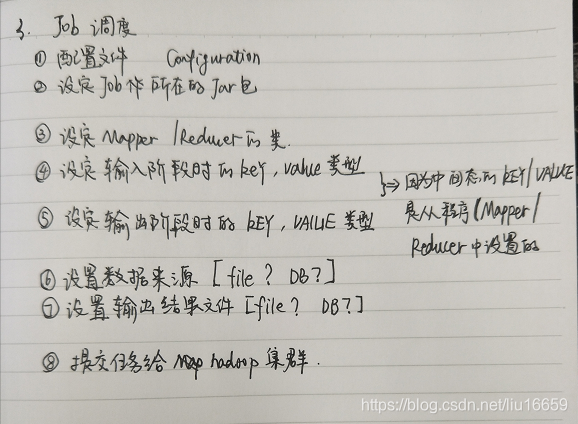 3. Job 调度
① 配置文件 Configuration
② 设定Job作所在的Jar包
③ 设定Mapper/Reducer的类.
④ 设定输入阶段时的KEY, value类型
⑤ 设定输出阶段时的KEY, VALUE类型
}⇒因为中间态的KEY/VALUE
是从程序(Mapper/
Reducer中设置的
⑥ 设置数据来源 [file? DB?]
⑦ 设置输出结果文件 [file? DB?]
⑧ 提交任务给Map hadoop 集群.
https://blog.csdn.net/liu16659